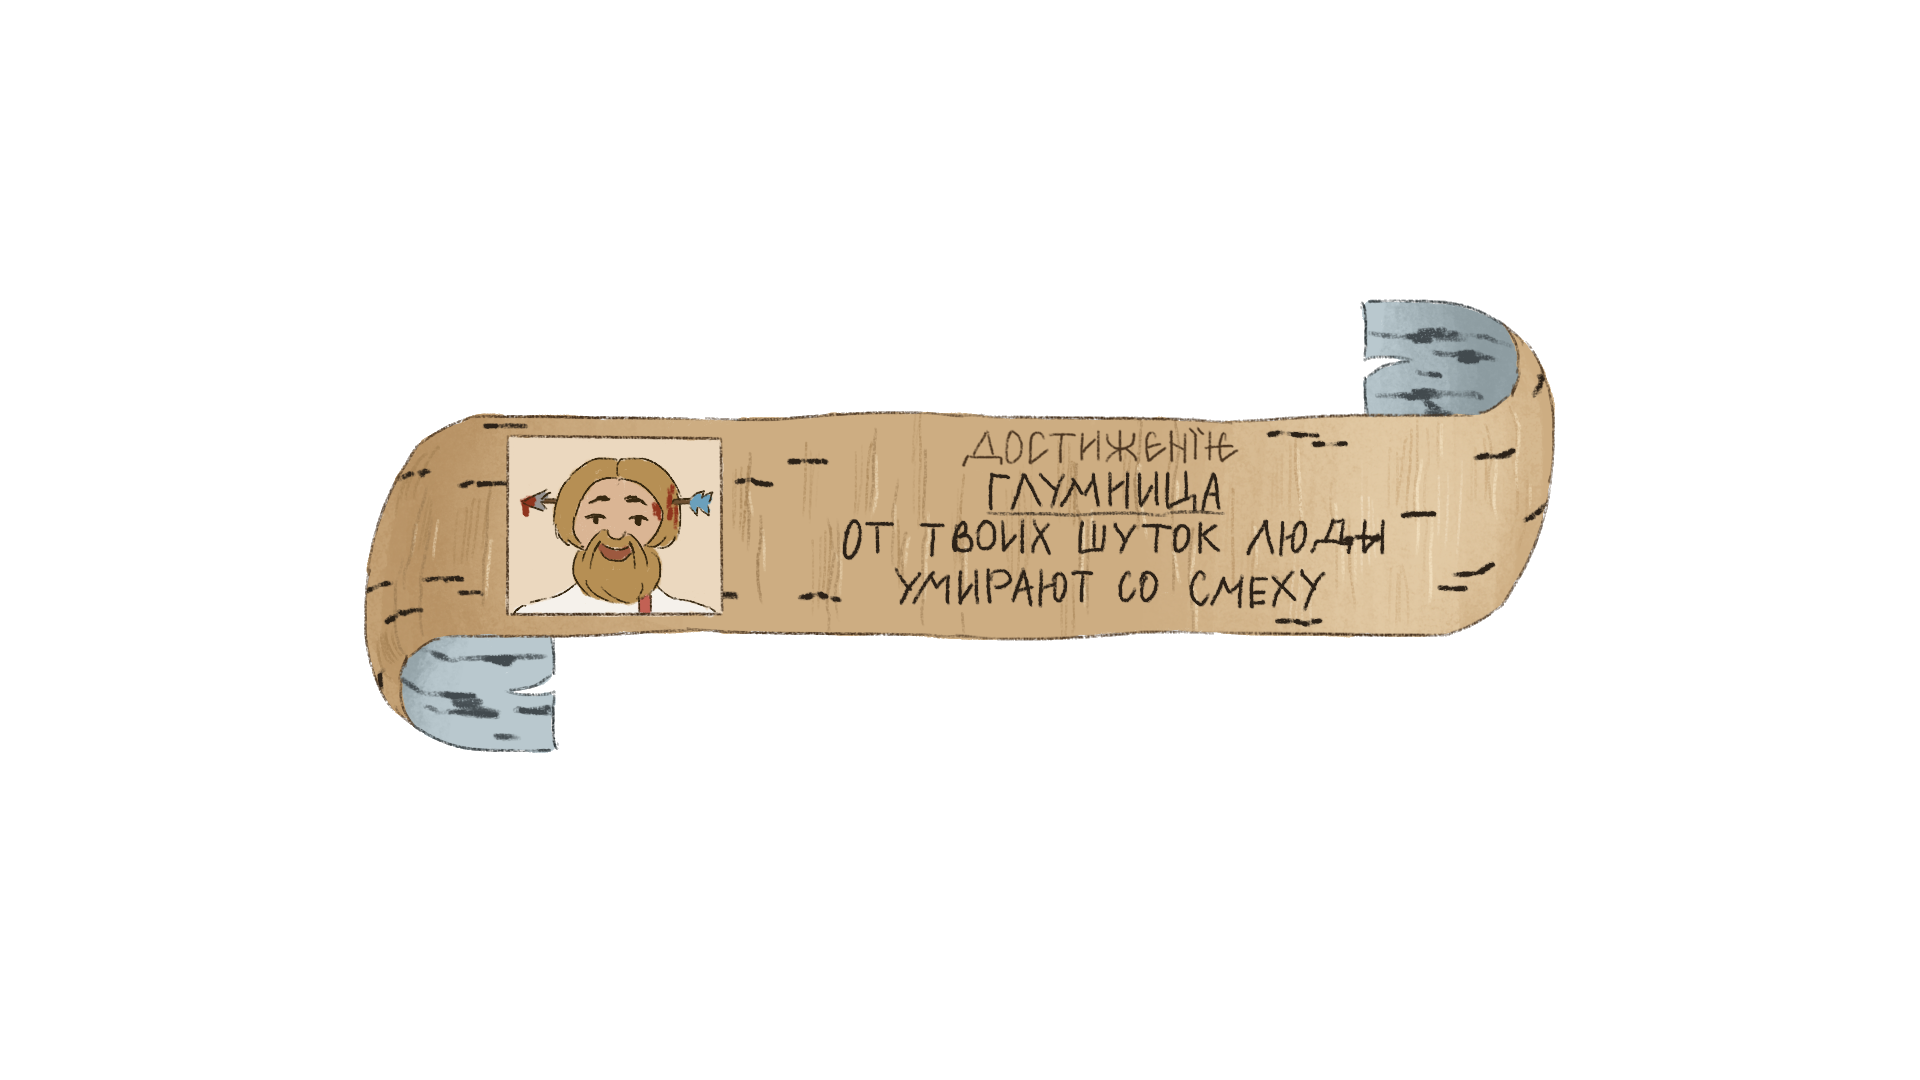 ДОСТИЖЕНЇѤ
ГЛУМНИЦА
ОТ ТВОИХ ШУТОК ЛЮДЫ
УМИРАЮТ СО СМЕХУ